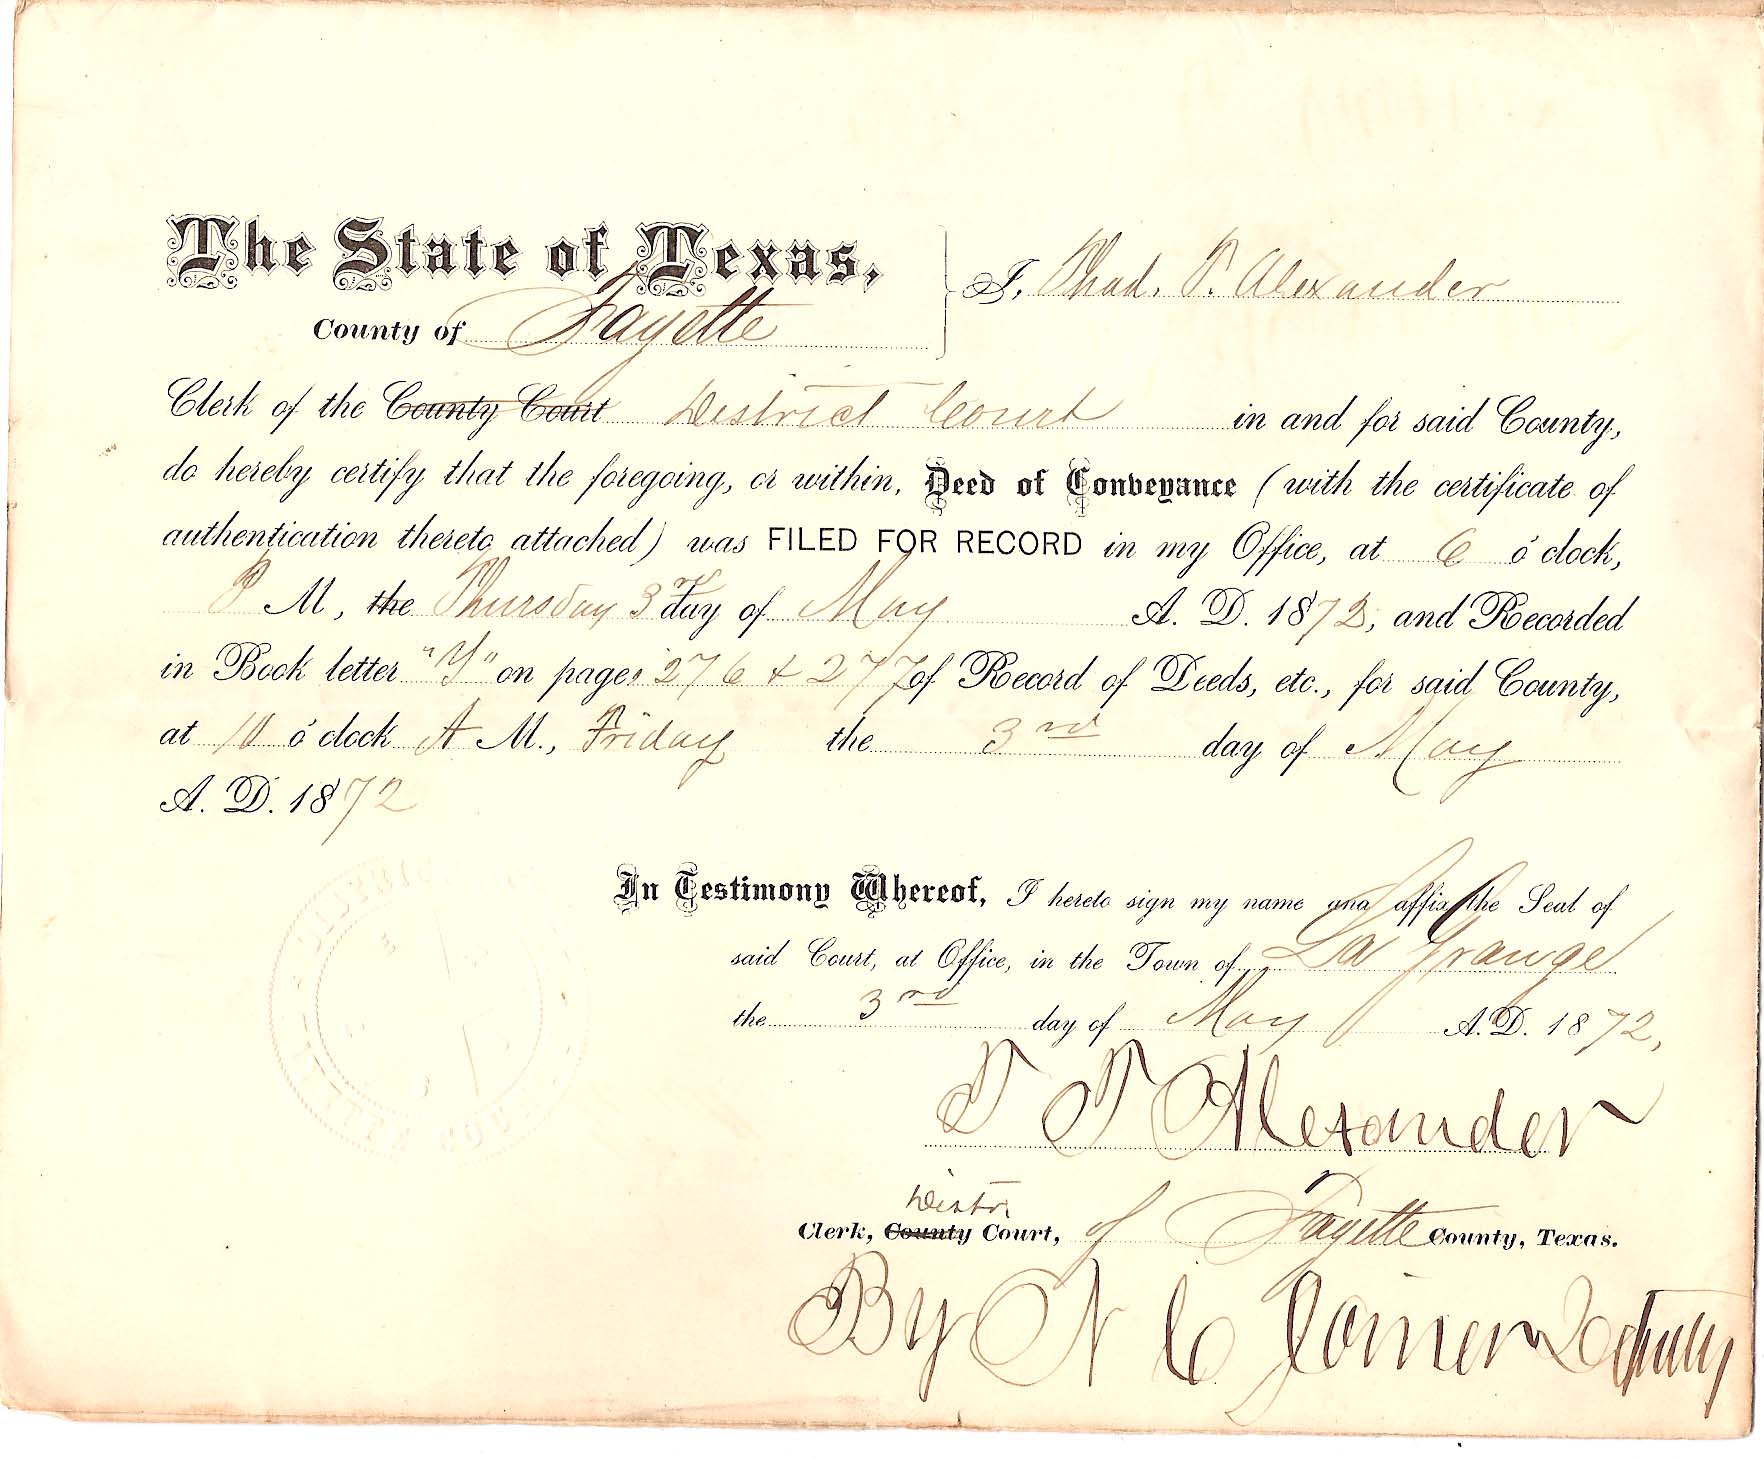 The State of Texas,
County of Fayette
I, Thad. P. Alexander
Clerk of the County Court District Court in and for said County,
do hereby certify that the foregoing, or within, Deed of Conveyance (with the certificate of
authentication thereto attached) was FILED FOR RECORD in my Office, at 6 o'clock,
P M., the Thursday day of May A. D. 1872, and Recorded
in Book letter "Y" on pages 276 & 277 of Record of Deeds, etc., for said County,
at 10 o'clock A M., Friday the 3rd day of May
A. D. 1872
In Testimony Whereof, I hereto sign my name and affix the Seal of
said Court, at Office, in the Town of La Grange
the 3rd day of May A. D. 1872,
T P Alexander
Distr.
Clerk, County Court, of Fayette County, Texas.
By N C Joiner Deputy